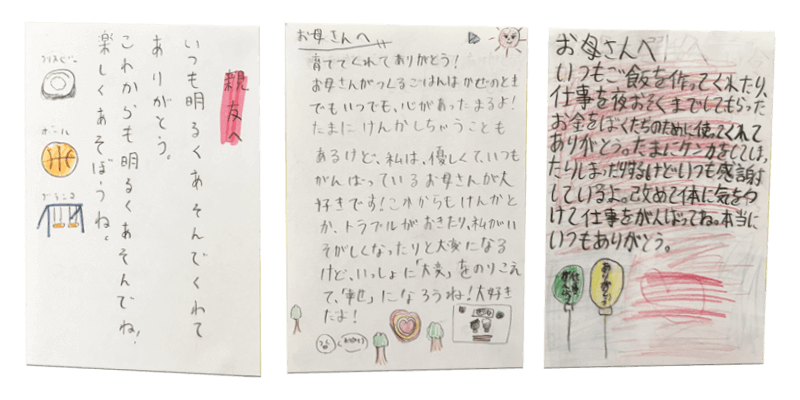 親友へ
いつも明るくあそんでくれて
ありがとう。
これからも明るくあそんでね!
楽しくあそぼうね。
フリスビー
ボール
ぶらんこ
お母さんへ
育ててくれてありがとう!
お母さんがつくるごはんはかぜのとき
でもいつでも、心があったまるよ!
たまにけんかしちゃうことも
あるけど、私は、優しくて、いつも
がんばっているお母さんが大
好きです!これからもけんかと
か、トラブルがおきたり、私がい
そがしくなったりと大変になる
けど、いっしょに「大変」をのりこえ
て、「幸せ」になろうね!大好き
だよ!
お母さんへ
いつもご飯を作ってくれたり、
仕事を夜おそくまでしてもらった
お金をぼくたちのために使ってくれて
ありがとう。たまにケンカをしてしまっ
たりしまったりするけどいつも感謝
しているよ。改めて体に気をつ
けて仕事をがんばってね。本当に
いつもありがとう。
ありがとう